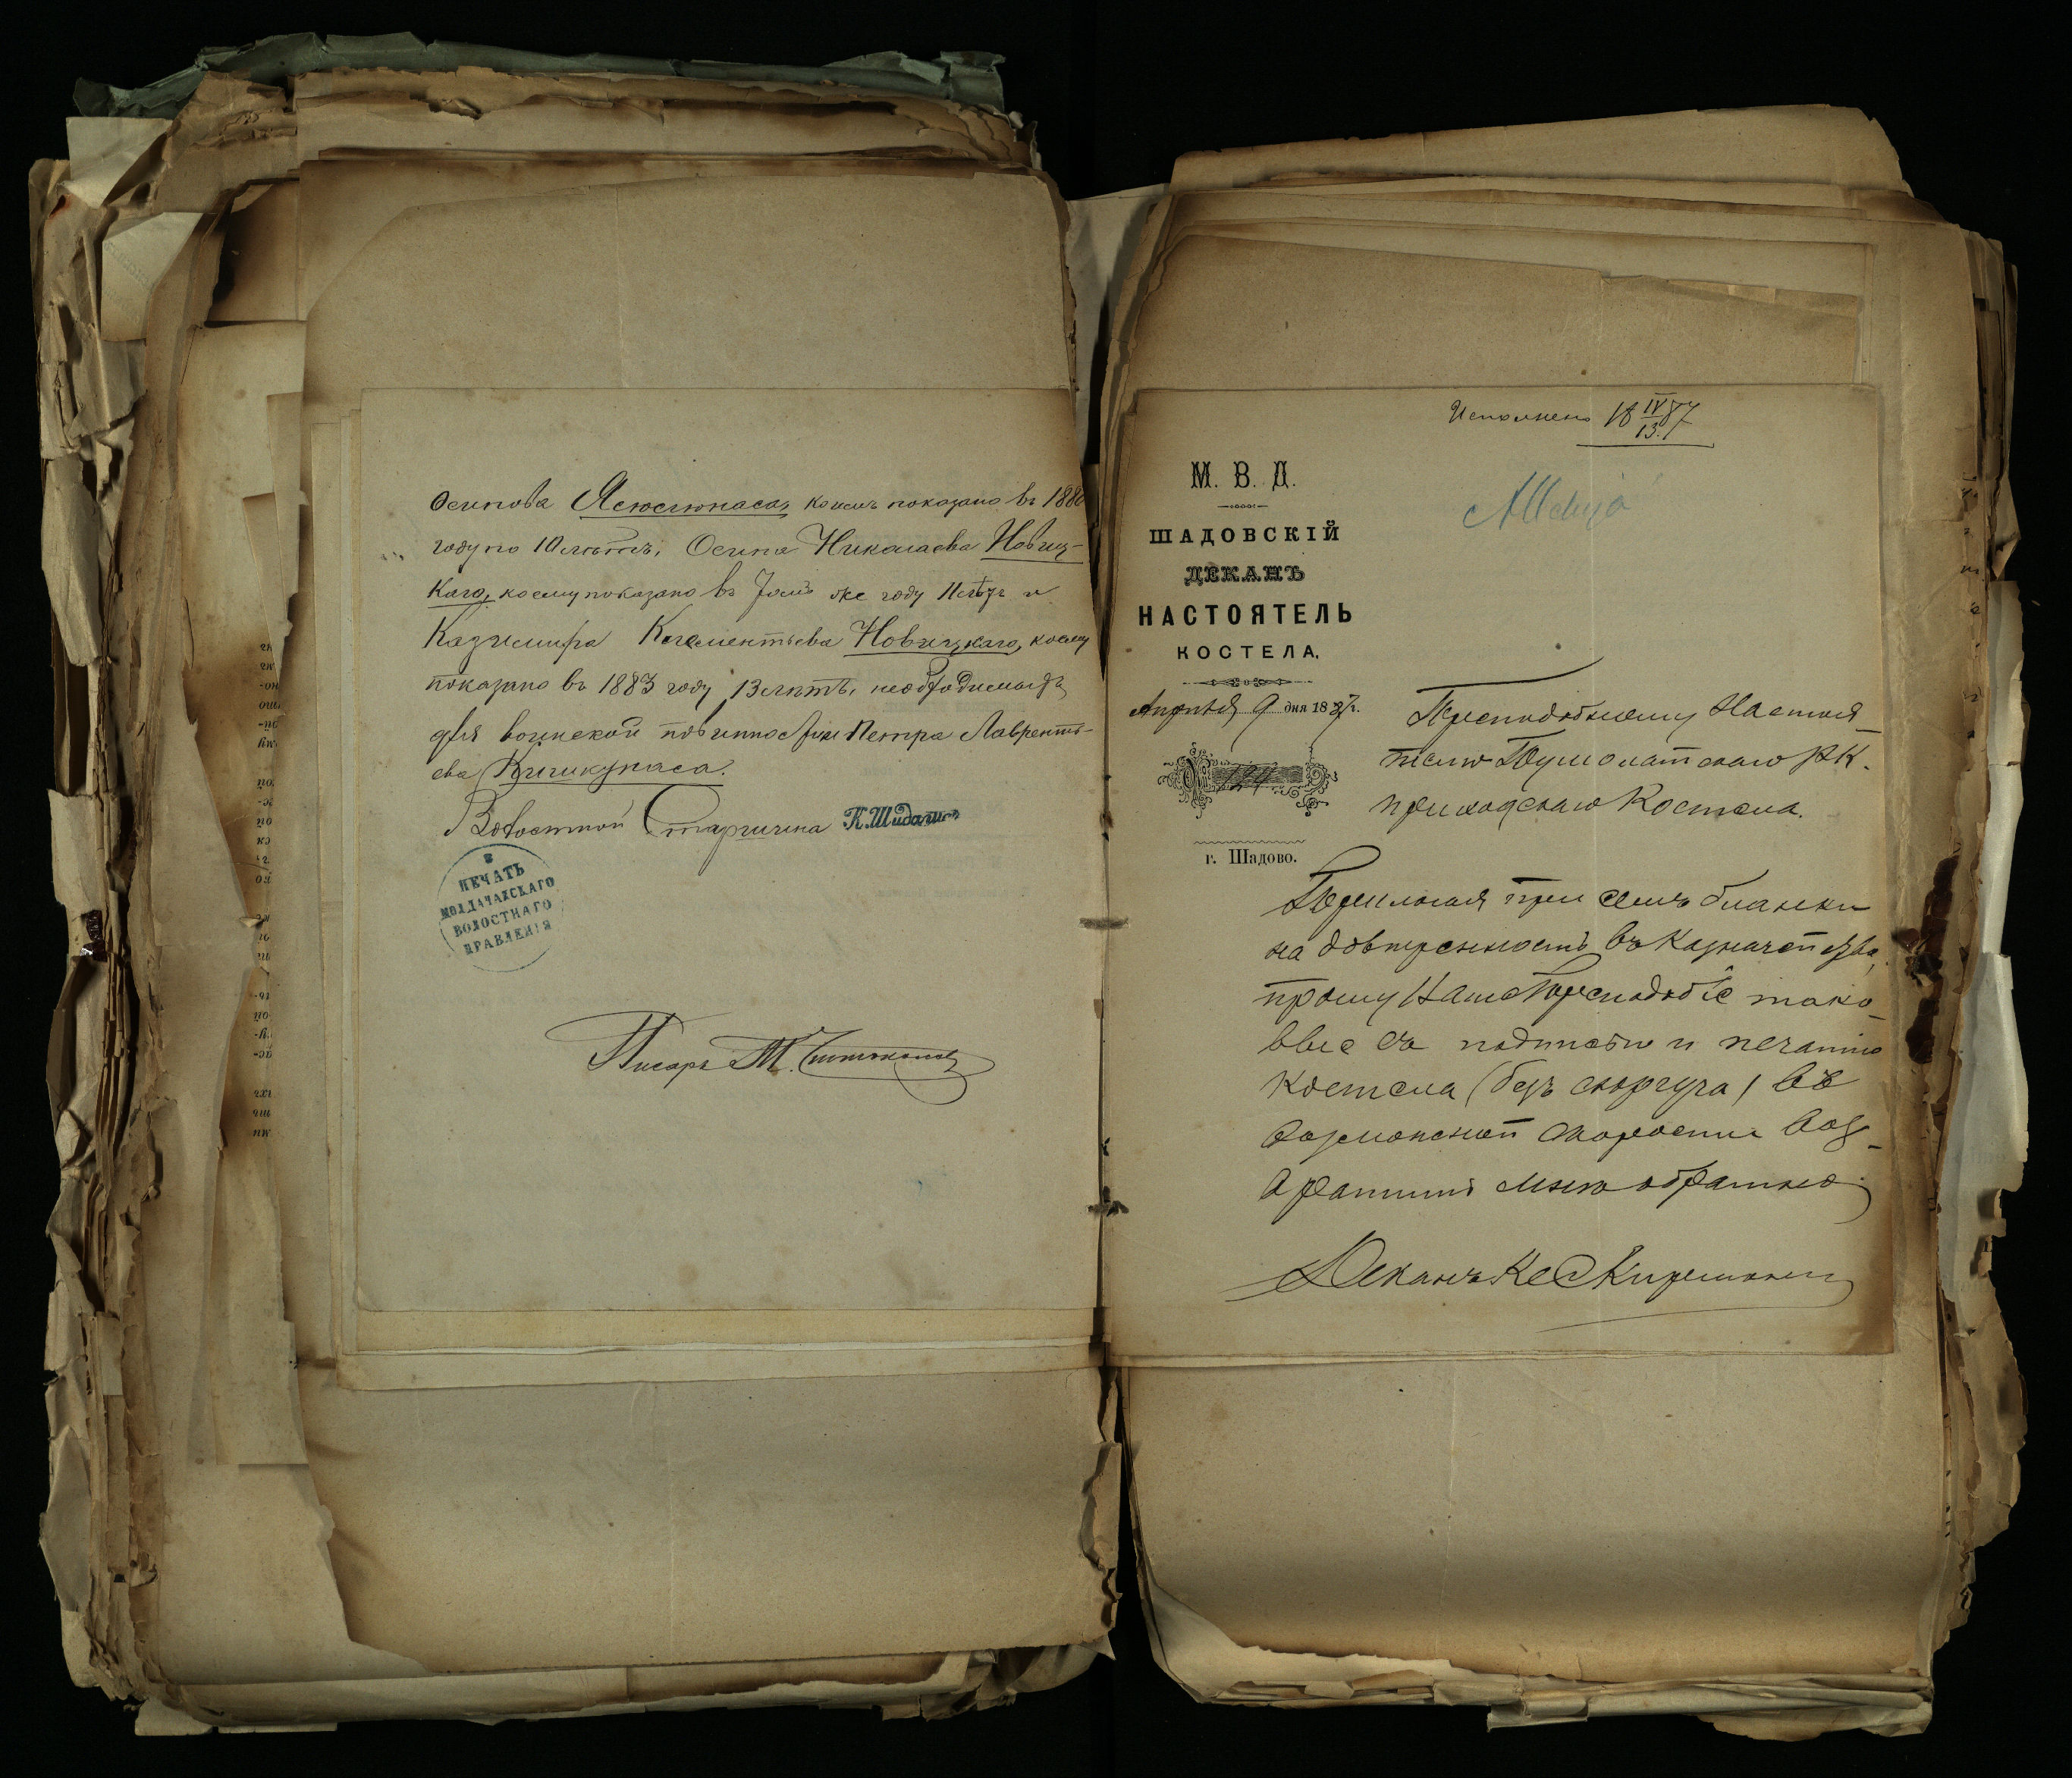 Осипова Ясюсюнаса, коимъ показано въ 188
году по 10 лѣтъ, Осипа Николаева Новиц-
каго, коему показано въ томъ же году 11 лѣтъ и
Казимира Клементьева Новицкаго, коему
показано въ 1883 году 13 лѣтъ, необходимыхъ
для воинской повинности Петра Лавренть-
ева Кичикунаса.
Волостной Старшина К. Шидла
ПЕЧАТЬ
ВОЛОСТНАГО
ПРАВЛЕНІЯ
Писарь М.
Исполнено 18 IV/13 87
М. В. Д.
ШАДОВСКІЙ
ДЕКАНЪ
НАСТОЯТЕЛЬ
КОСТЕЛА.
Апрѣля 9 дня 1887 г.
№ 124
г. Шадово.
Преподобному Настоя-
телю Пушолатскаго РК.
приходскаго Костела.
Прилагая при семъ бланки
на довѣренность въ Казначейства,
прошу Ваше Преподобіе тако-
выe съ подписью и печатью
Костела (безъ сюргуча) въ
возможной скорости воз-
вратить мнѣ обратно
Деканъ Кс